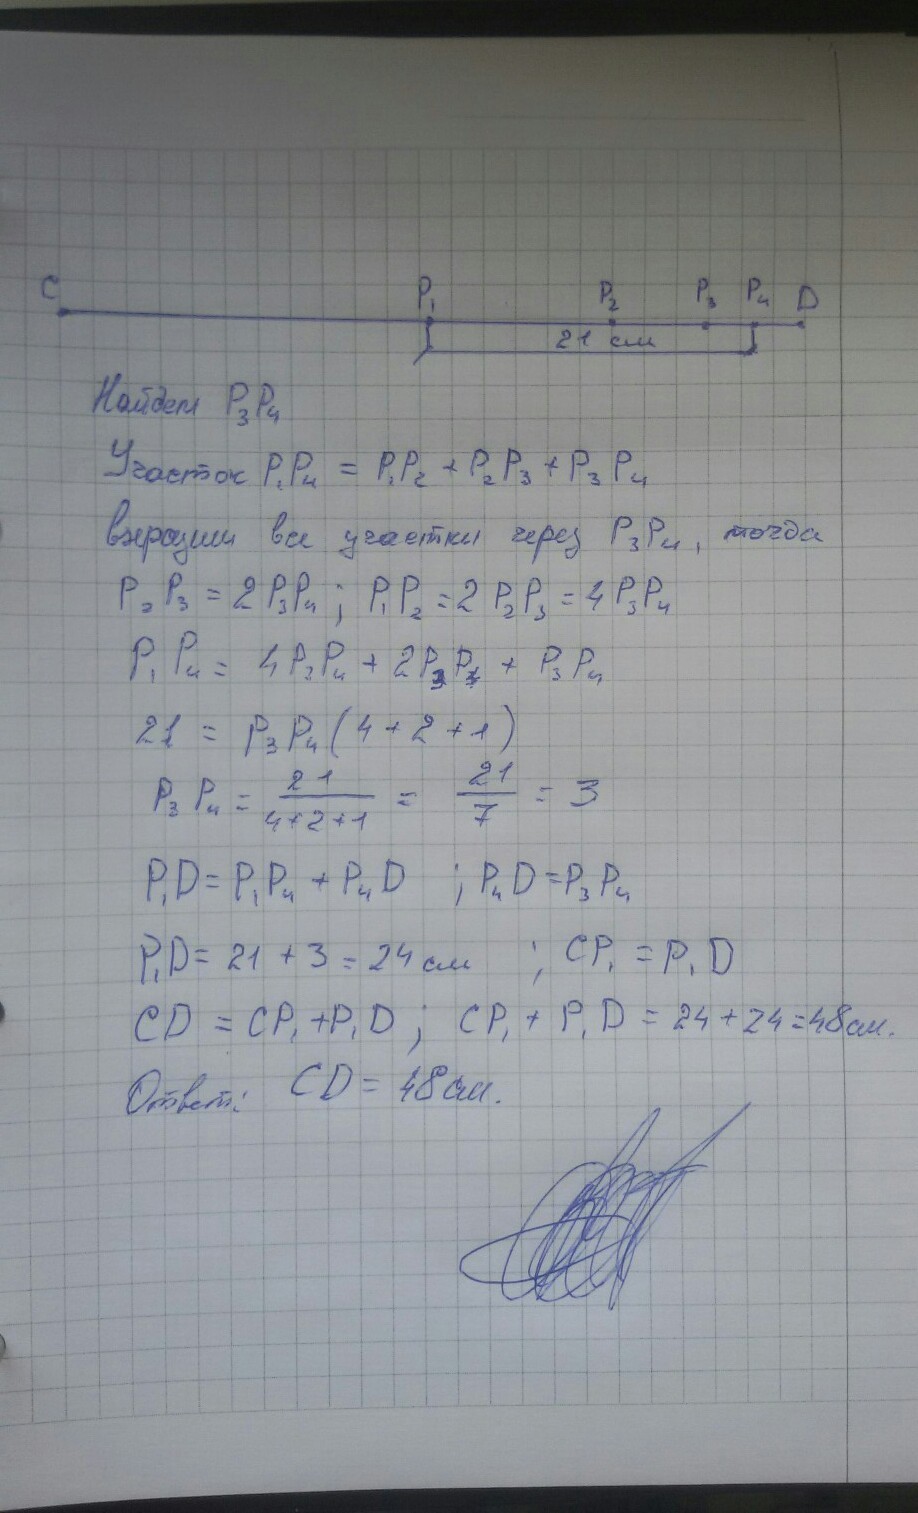 C P₁ P₂ P₃ P₄ D
21 см
Найдем P₃P₄
Участок P₁P₄ = P₁P₂ + P₂P₃ + P₃P₄
выразим все участки через P₃P₄, тогда
P₂P₃ = 2P₃P₄; P₁P₂ = 2P₂P₃ = 4P₃P₄
P₁P₄ = 4P₃P₄ + 2P₃P₄ + P₃P₄
21 = P₃P₄(4+2+1)
P₃P₄ = 21/(4+2+1) = 21/7 = 3
P₁D = P₁P₄ + P₄D ; P₄D = P₃P₄
P₁D = 21 + 3 = 24 см ; CP₁ = P₁D
CD = CP₁ + P₁D ; CP₁ + P₁D = 24 + 24 = 48 см.
Ответ: CD = 48 см.